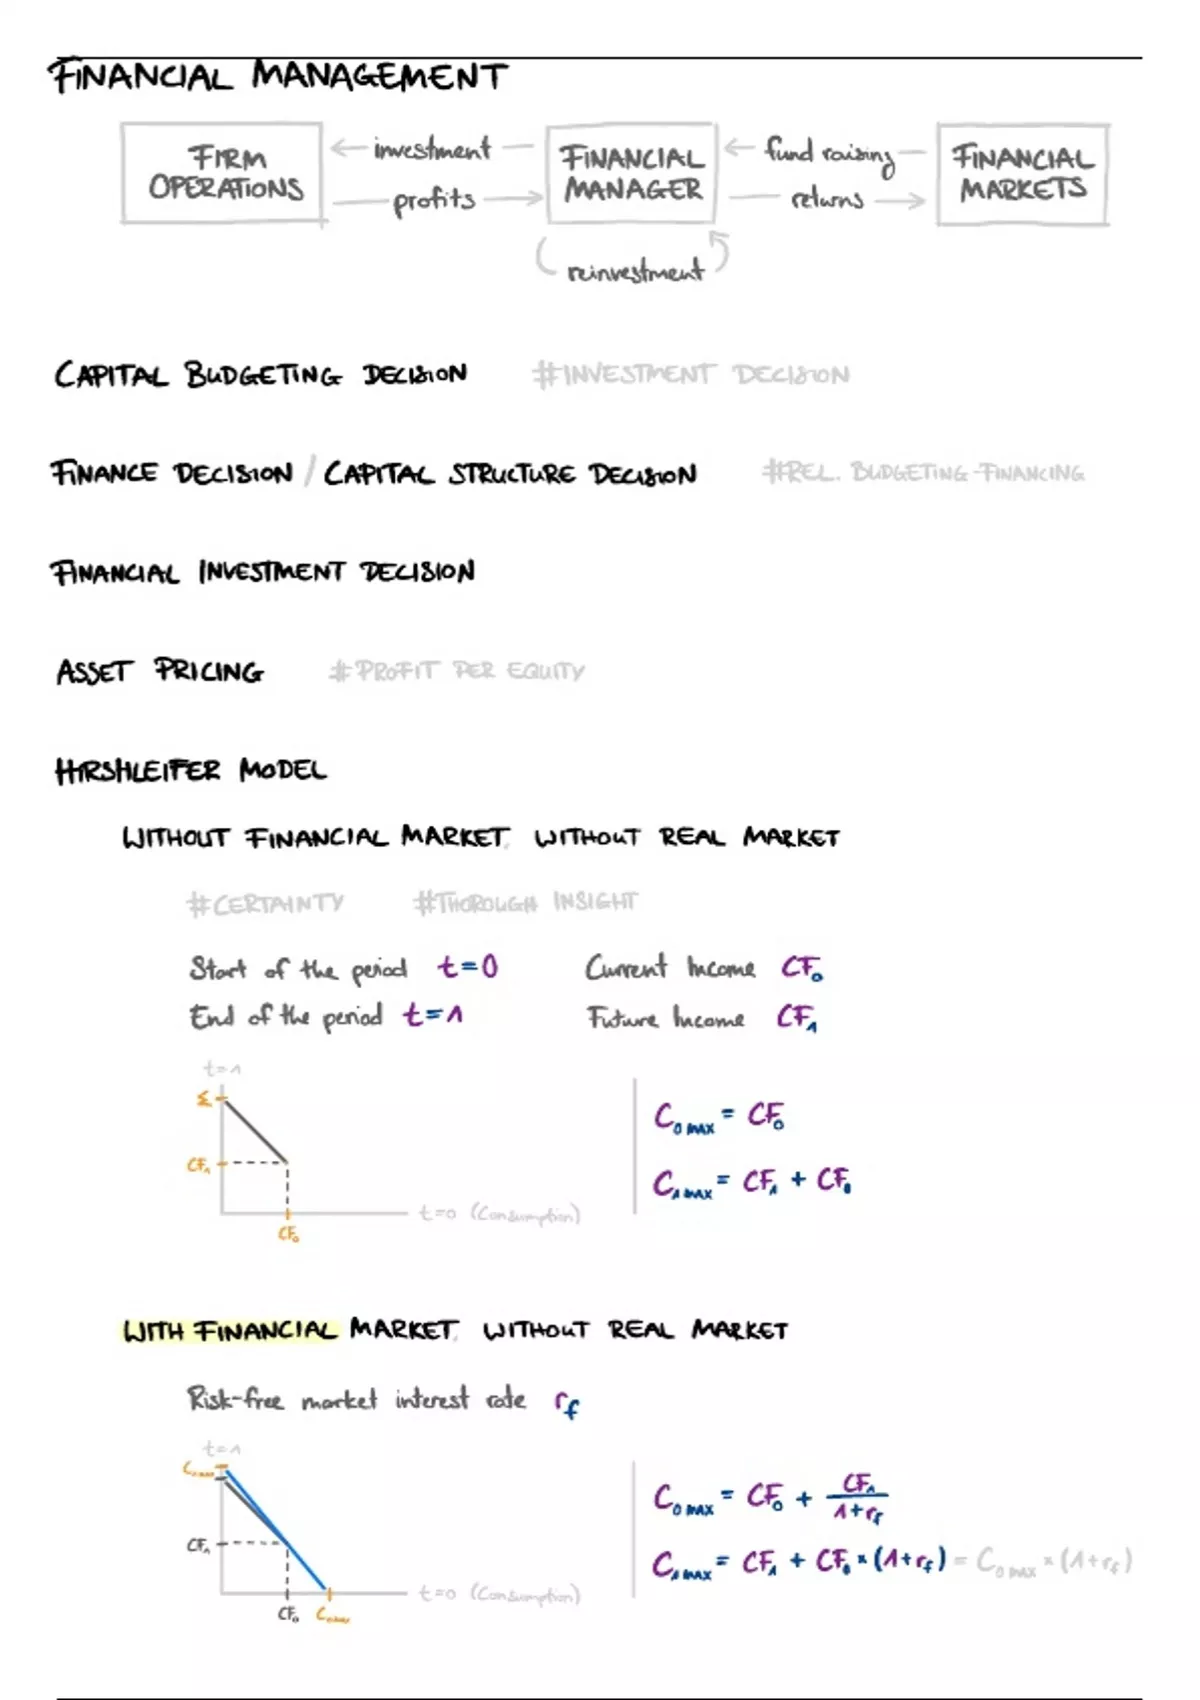 FINANCIAL MANAGEMENT
FIRM OPERATIONS ← investment — FINANCIAL MANAGER ← fund raising — FINANCIAL MARKETS
— profits → — returns →
reinvestment
CAPITAL BUDGETING DECISION #INVESTMENT DECISION
FINANCE DECISION / CAPITAL STRUCTURE DECISION #REL. BUDGETING-FINANCING
FINANCIAL INVESTMENT DECISION
ASSET PRICING #PROFIT PER EQUITY
HIRSHLEIFER MODEL
WITHOUT FINANCIAL MARKET, WITHOUT REAL MARKET
#CERTAINTY #THOROUGH INSIGHT
Start of the period t=0 Current Income CF₀
End of the period t=1 Future Income CF₁
t=1
Σ
C₀ max = CF₀
CF₁
C₁ max = CF₁ + CF₀
t=0 (Consumption)
CF₀
WITH FINANCIAL MARKET, WITHOUT REAL MARKET
Risk-free market interest rate rf
t=1
C₁ max
C₀ max = CF₀ + CF₁ / (1+rf)
CF₁
C₁ max = CF₁ + CF₀ × (1+rf) = C₀ max × (1+rf)
t=0 (Consumption)
CF₀ C₀ max